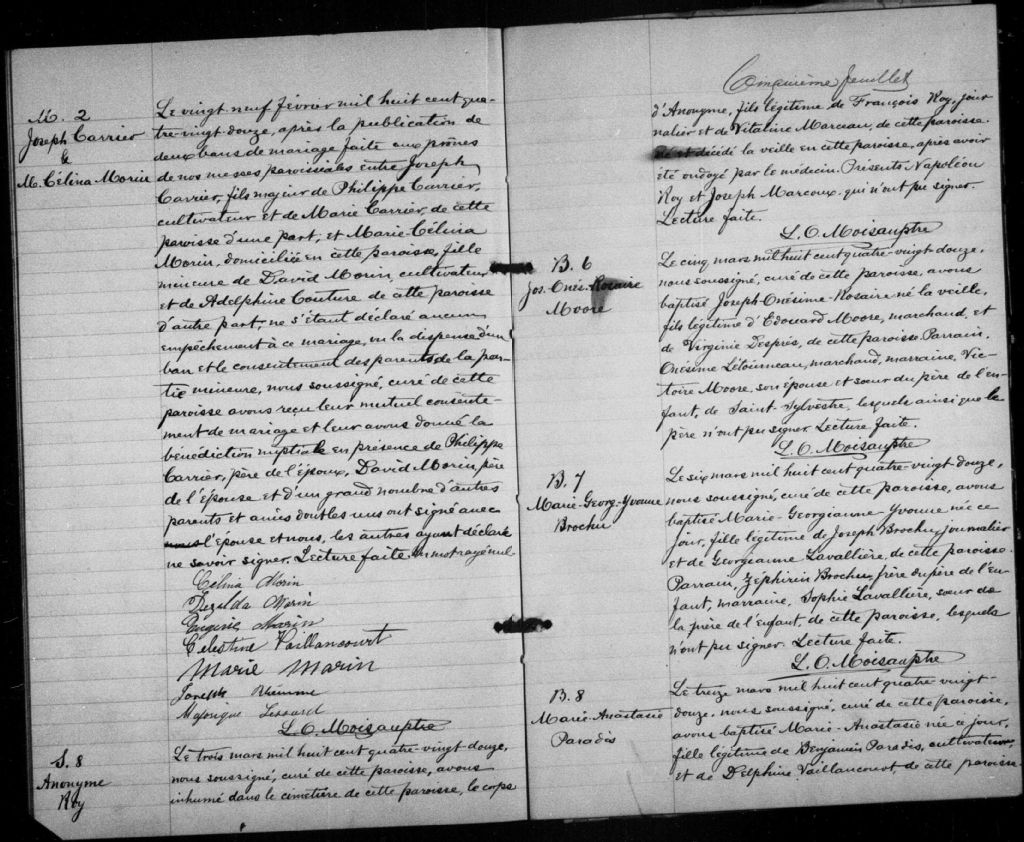 M. 2
Joseph Carrier
&
M. Célina Morin
Le vingt-neuf février mil huit cent qua-
tre-vingt douze, après la publication de
deux bans de mariage faite aux prônes
de nos messes paroissiales entre Joseph
Carrier, fils majeur de Philippe Carrier,
cultivateur et de Marie Carrier, de cette
paroisse d'une part, et Marie-Célina
Morin, domiciliée en cette paroisse, fille
mineure de David Morin, cultivateur
et de Adelphine Couture de cette paroisse
d'autre part, ne s'étant déclaré aucun
empêchement à ce mariage, vu la dispense d'un
ban et le consentement des parents de la par-
tie mineure, nous soussigné, curé de cette
paroisse avons reçu leur mutuel consente-
ment de mariage et leur avons donné la
bénédiction nuptiale en présence de Philippe
Carrier, père de l'époux, David Morin, père
de l'épouse et d'un grand nombre d'autres
parents et amies dont les uns ont signé avec
l'épouse et nous, les autres ayant déclaré
ne savoir signer. Lecture faite. Un mot rayé nul
Célina Morin
Morin
Eugénie Morin
Célestine Vaillancourt
Marie Marin
Joseph
Lessard
L. O. Moisan ptre
S. 8
Anonyme
Roy
Le trois mars mil huit cent quatre-vingt-douze,
nous soussigné, curé de cette paroisse, avons
inhumé dans le cimetière de cette paroisse, le corps
Cinquième feuillet
d'Anonyme, fils légitime de François Roy, jour
nalier et de Vitaline Marceau, de cette paroisse.
Né et décédé la veille en cette paroisse, après avoir
été ondoyé par le médecin. Présents Napoléon
Roy et Joseph Marcoux qui n'ont pu signer.
Lecture faite.
L. O. Moisan ptre
B. 6
Jos. Onés. Rosaire
Moore
Le cinq mars mil huit cent quatre-vingt douze,
nous soussigné, curé de cette paroisse, avons
baptisé Joseph-Onésime-Rosaire né la veille,
fils légitime d'Edouard Moore, marchand, et
de Virginie Després, de cette paroisse. Parrain,
Onésime Létourneau, marchand, marraine, Vic-
toire Moore, son épouse et sœur du père de l'en-
fant, de Saint-Sylvestre, lesquels ainsi que le
père n'ont pu signer. Lecture faite.
L. O. Moisan ptre
B. 7
Marie-Georg-Yvonne
Brochu
Le six mars mil huit cent quatre-vingt-douze,
nous soussigné, curé de cette paroisse, avons
baptisé Marie-Georgianne-Yvonne née ce
jour, fille légitime de Joseph Brochu, journalier
et de Georgianne Lavallière, de cette paroisse.
Parrain, Zéphirin Brochu, frère du père de l'en-
fant, marraine, Sophie Lavallière, sœur de
la mère de l'enfant, de cette paroisse, lesquels
n'ont pu signer. Lecture faite.
L. O. Moisan ptre
B. 8
Marie-Anastasie
Paradis
Le treize mars mil huit cent quatre-vingt-
douze, nous soussigné, curé de cette paroisse,
avons baptisé Marie-Anastasie née ce jour,
fille légitime de Benjamin Paradis, cultivateur,
et de Delphine Vaillancourt, de cette paroisse.